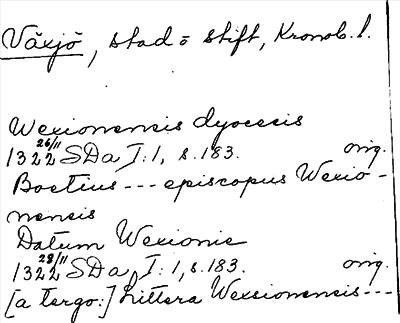 Växjö, stad o stift, Kronob. l.
Wexionensis dyocesis
1322 26/11 SDa I:1, s.183. orig.
Boetius --- episcopus Wexio-
nensis
Datum Wexionie
1322 28/11 SDa, I:1, s.183. orig.
[a tergo:] Littera Wexsionensis---